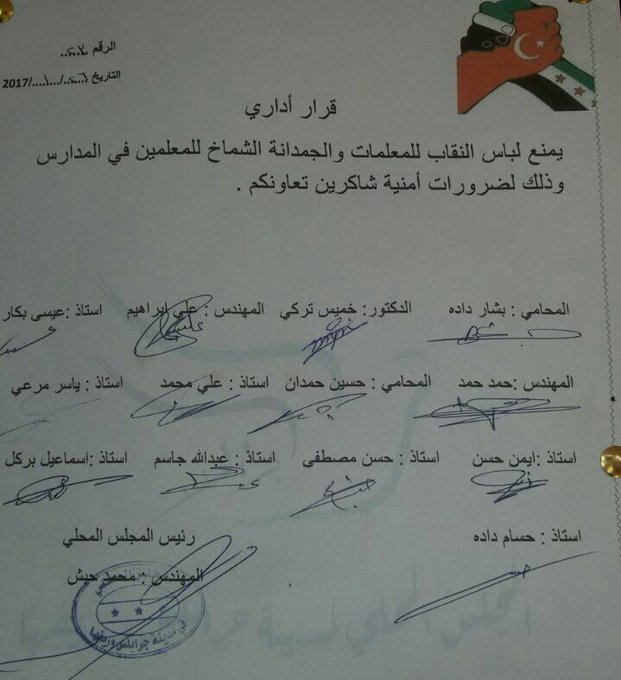 الرقم
التاريخ ٢٦/١/2017
قرار أداري
يمنع لباس النقاب للمعلمات والجمدانة الشماخ للمعلمين في المدارس
وذلك لضرورات أمنية شاكرين تعاونكم .
المحامي : بشار داده الدكتور: خميس تركي المهندس : علي ابراهيم استاذ : عيسى بكار
المهندس :حمد حمد المحامي : حسين حمدان استاذ : علي محمد استاذ : ياسر مرعي
استاذ :ايمن حسن استاذ : حسن مصطفى استاذ : عبدالله جاسم استاذ :اسماعيل بركل
استاذ : حسام داده رئيس المجلس المحلي
المهندس : محمد حبش
في مدينة جرابلس وريفها
المجلس المحلي لمدينة جرابلس وريفها